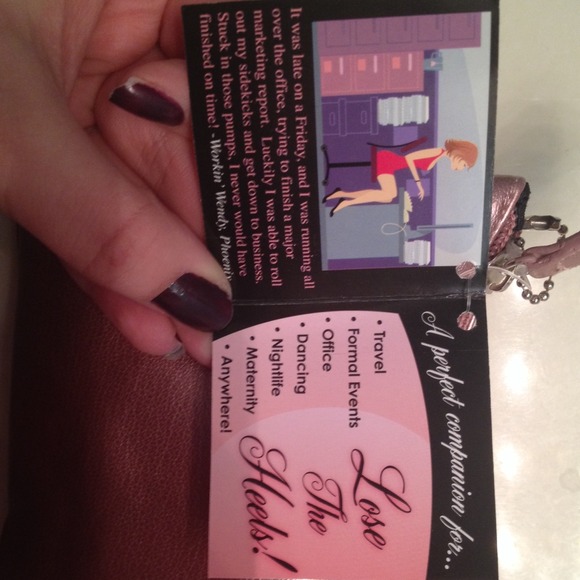 It was late on a Friday, and I was running all
over the office, trying to finish a major
marketing report. Luckily I was able to roll
out my sidekicks and get down to business.
Stuck in those pumps, I never would have
finished on time! -Workin' Wendy, Phoenix
A perfect companion for...
• Travel
• Formal Events
• Office
• Dancing
• Nightlife
• Maternity
• Anywhere!
Lose
The
Heels!